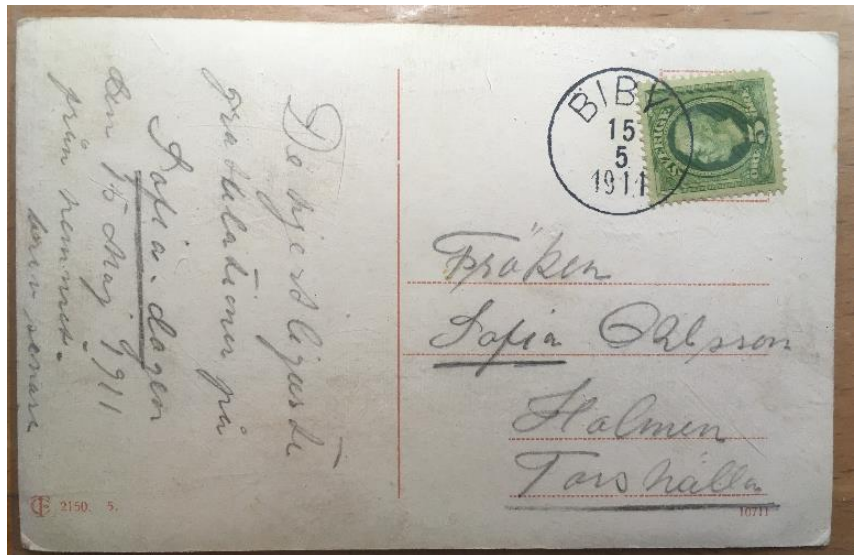 De hjertligaste
gratulationer på
Sofia-dagen
den 15 Maj 1911
från hemmet.
senare
BIBY
15
5
1911
SVERIGE
5
Fröken
Sofia Ohlsson
Holmen
Torshälla
2150. 5.
10711